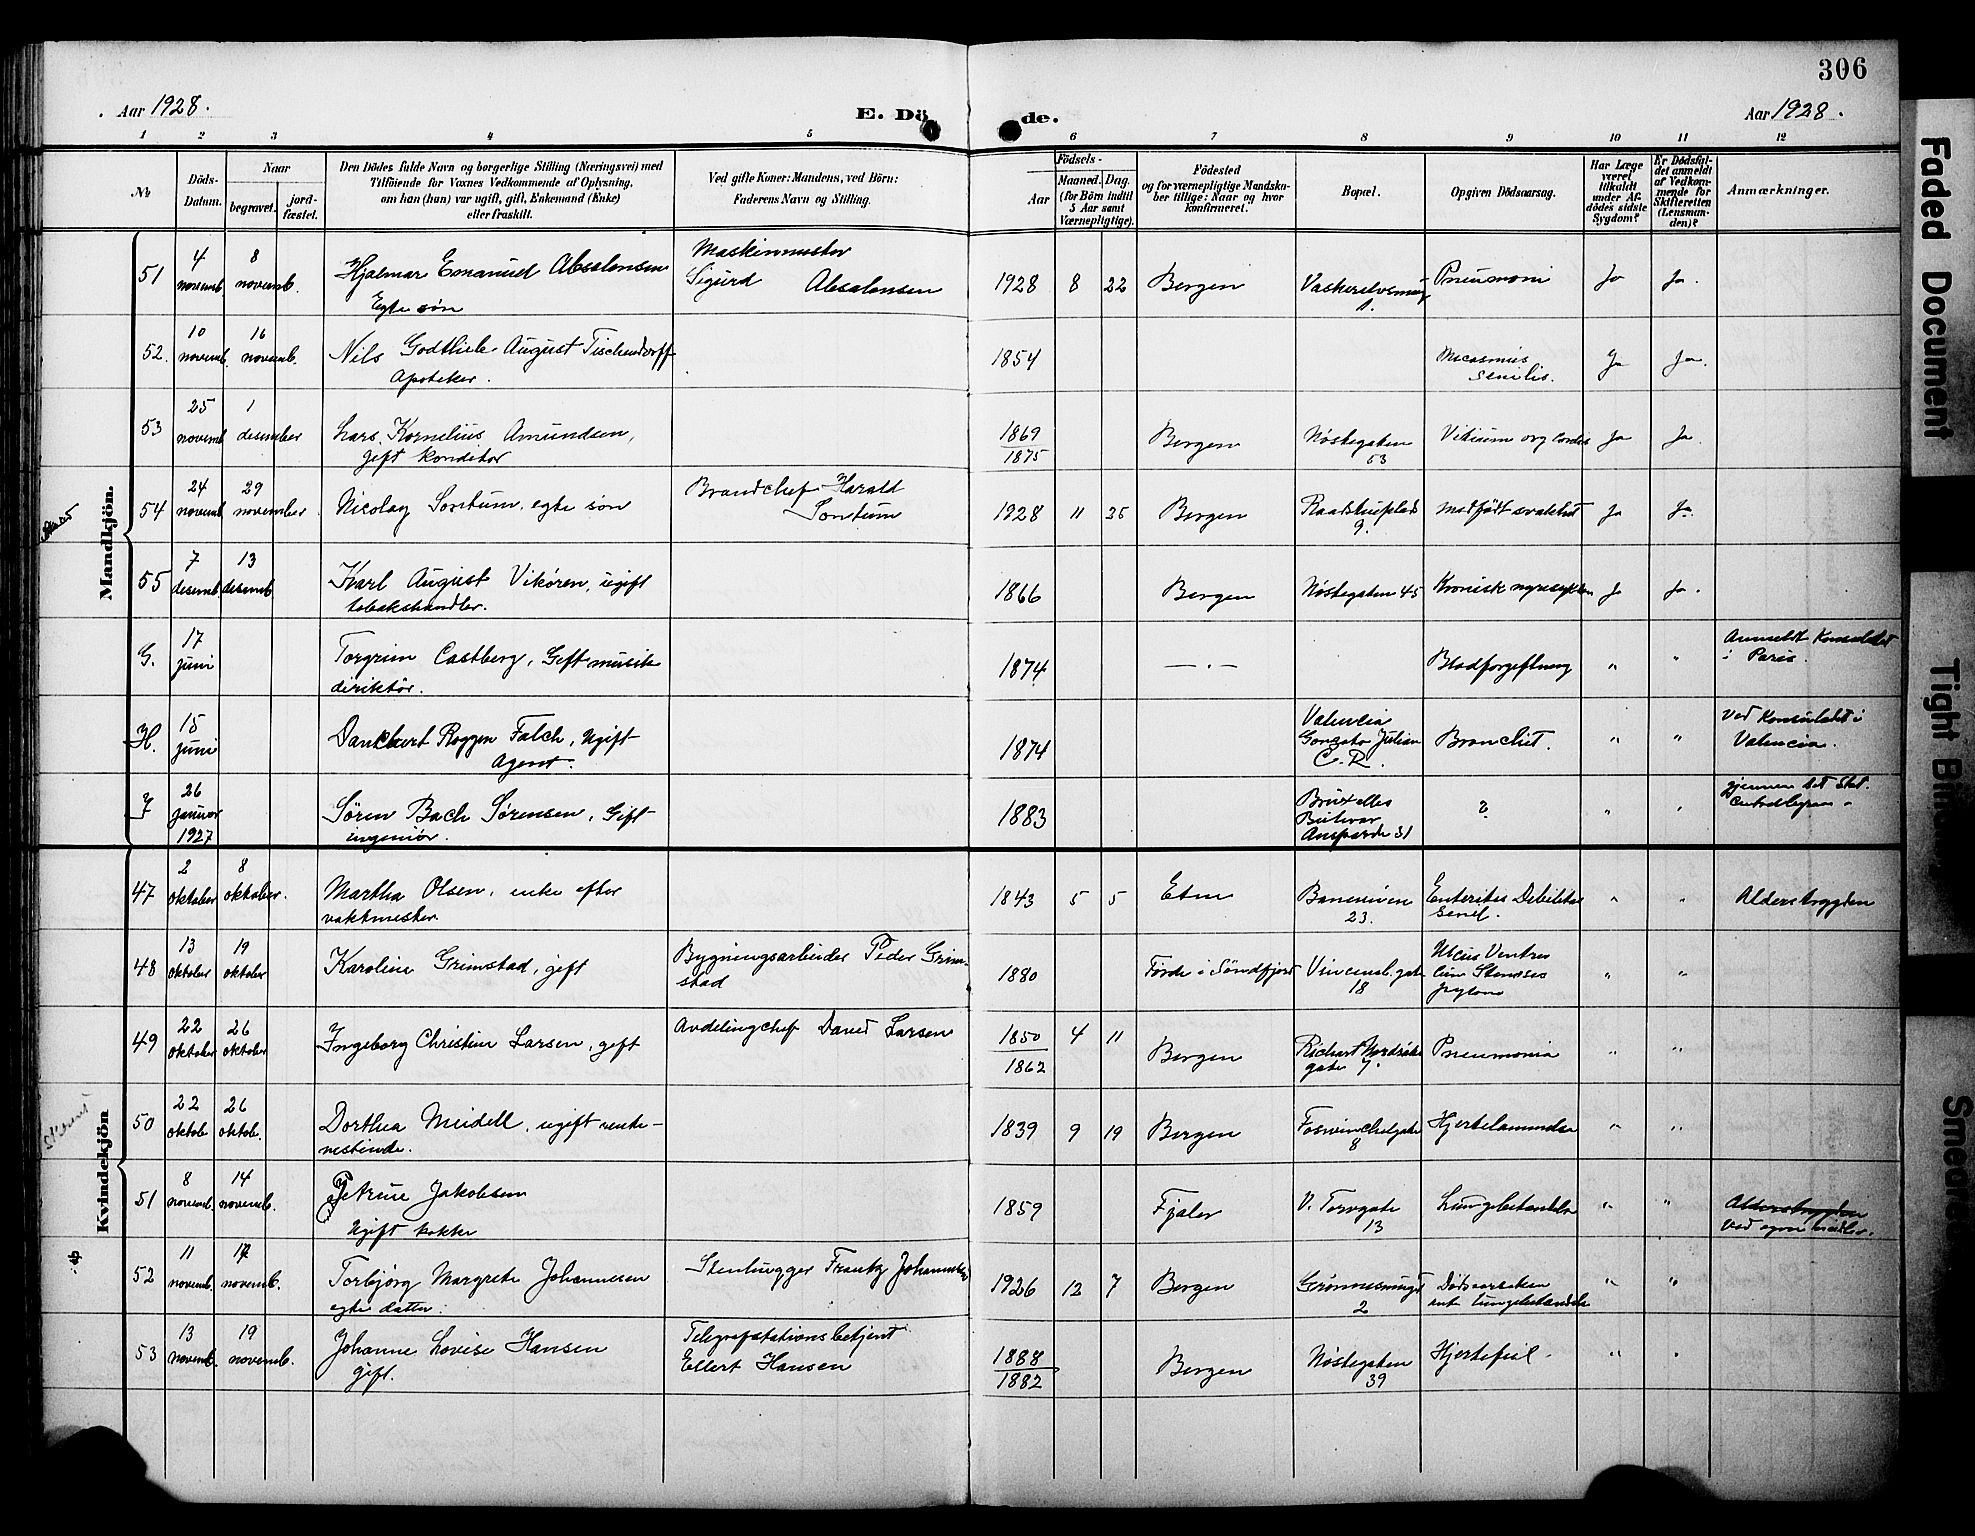 306
Aar 1928.
E. Dö de.
Aar 1928.
1 2 3 4 5 6 7 8 9 10 11 12
No
Döds-
Datum.
Naar
begravet. jord-
fæstet.
Den Dödes fulde Navn og borgerlige Stilling (Næringsvei) med
Tilföiende for Voxnes Vedkommende af Oplysning,
om han (hun) var ugift, gift, Enkemand (Enke)
eller fraskilt.
Ved gifte Koner: Mandens, ved Börn:
Faderens Navn og Stilling.
Födsels-
Aar Maaned. Dag.
(for Börn indtil
5 Aar samt
Værnepligtige).
Födested
og for værnepligtige Mandska-
ber tillige: Naar og hvor
konfirmeret.
Bopæl.
Opgiven Dödsaarsag.
Har Læge
været
tilkaldt
under Af-
dödes sidste
Sygdom?
Er Dödsfal-
det anmeldt
af Vedkom-
mende for
Skifteretten
(Lensman-
den)?
Anmærkninger.
Mandkjön.
51 4 novemb. 8 novemb. Hjalmar Emanuel Absalonsen
Egte søn
Maskinmester
Sigurd Absalonsen
1928 8 22 Bergen Vaskerelvsmug
Pneumoni Ja Ja.
52. 10 novemb. 16 novemb. Nils Godtlieb August Tischendorff
Apoteker.
1854
senilis. Ja Ja.
53 25 novemb 1 desember Lars Kornelius Amundsen,
gift konditor
1869
1875
Bergen Nøstegaten
53
Vitium org cordis Ja Ja.
54 24 novemb 29 november Nicolay Sontum, egte søn
Brandchef Harald
Sontum
1928 11 25 Bergen Raadhusplads
9.
medfødt svakhet Ja Ja.
55 7 desemb. 13 desemb Karl August Vikøren, ugift
tobakshandler.
1866 Bergen Nøstegaten 45 Kronisk Ja Ja.
G. 17 juni Torgrim Castberg, Gift musik
diriktør.
1874 — . — Blodforgiftning " "
Anmeldt Konsulatet
i Paris.
H. 15 juni Danckert Roggen Falch, Ugift
Agent.
1874 Valencia
Julian
C. R.
Bronchit. " "
Ved Konsulatet i
Valencia.
J 26 januar 1927 Søren Bach Sørensen, Gift
ingeniør.
1883 Bruxelles
31
? " "
gjennem Det Stat.
Kvindekjön
47 2 oktober 8 oktober. Martha Olsen, enke efter
vaktmester.
1843 5 5 Etne
23.
Enteritis Debilitas
senil. " "
Alderstrygden
48 13 oktober 19 oktober Karoline Grimstad, gift
Bygningsarbeider Peder Grim-
stad
1880 Førde i Søndfjord Vincensl. gate
18
Ulcus Ventres
cum Stenoses
" "
49 22 oktober 26 oktober Ingeborg Christine Larsen, gift
Avdelingchef David Larsen
1850
1862
4 11 Bergen Richart Nordråks
gate 7.
Pneumonia " "
50 22 oktob 26 oktob. Dorthea Meidell, ugift rente-
nistinde.
1839 9 19 Bergen Foswinchelgate
8
Hjertelammelse " "
51 8 novemb. 14 novemb. Petrine Jakobsen
Ugift kokke
1859 Fjaler V. Torvgate
13
Lungebetændelse " "
Alderstrygden
Ved egne midler.
52 11 novemb. 17 novemb. Torbjørg Margrete Johannesen
egte datter.
Stenhugger Frantz Johannesen
1926 12 7 Bergen Grønnesmuget
2
Dødsaarsaken
lungebetændelse " "
53 13 novemb. 19 novemb. Johanne Lovise Hansen
gift.
Telegrafstationsbetjent
Ellert Hansen
1888
1882
Bergen Nøstegaten
39
Hjertefeil. " "
Faded Document
Tight